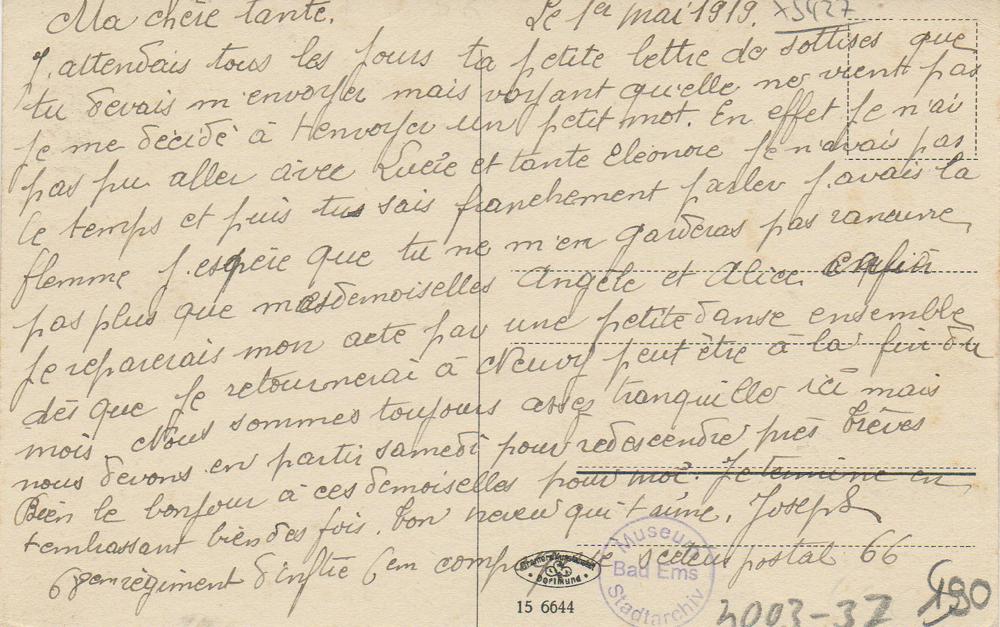 Ma chère tante. Le 1er mai 1919. x5427
J. attendais tous les jours ta petite lettre de sottises que
tu devais m'envoyer mais voyant qu'elle ne vient pas
je me décidé à t'envoyer un petit mot. En effet je n'ai
pas pu aller avec Lucie et tante Eléonore je n'avais pas
le temps et puis tu sais franchement parler j. avais la
flemme j. espère que tu ne m'en garderas pas rancune
pas plus que mesdemoiselles Angèle et Alice enfin
je reparerais mon acte par une petite danse ensemble
dès que je retournerai à Neuvy peut être à la fin du
mois. Nous sommes toujours assez tranquilles ici mais
nous devons en partir samedi pour redescendre près Trèves
Bien le bonjour à ces demoiselles pour moi. Je termine en
t'embrassant bien des fois. ton neveu qui t'aime. Joseph
68em régiment d'inftie 6em secteur postal 66
Dortmund
15 6644
Museum
Bad Ems
Stadtarchiv
190